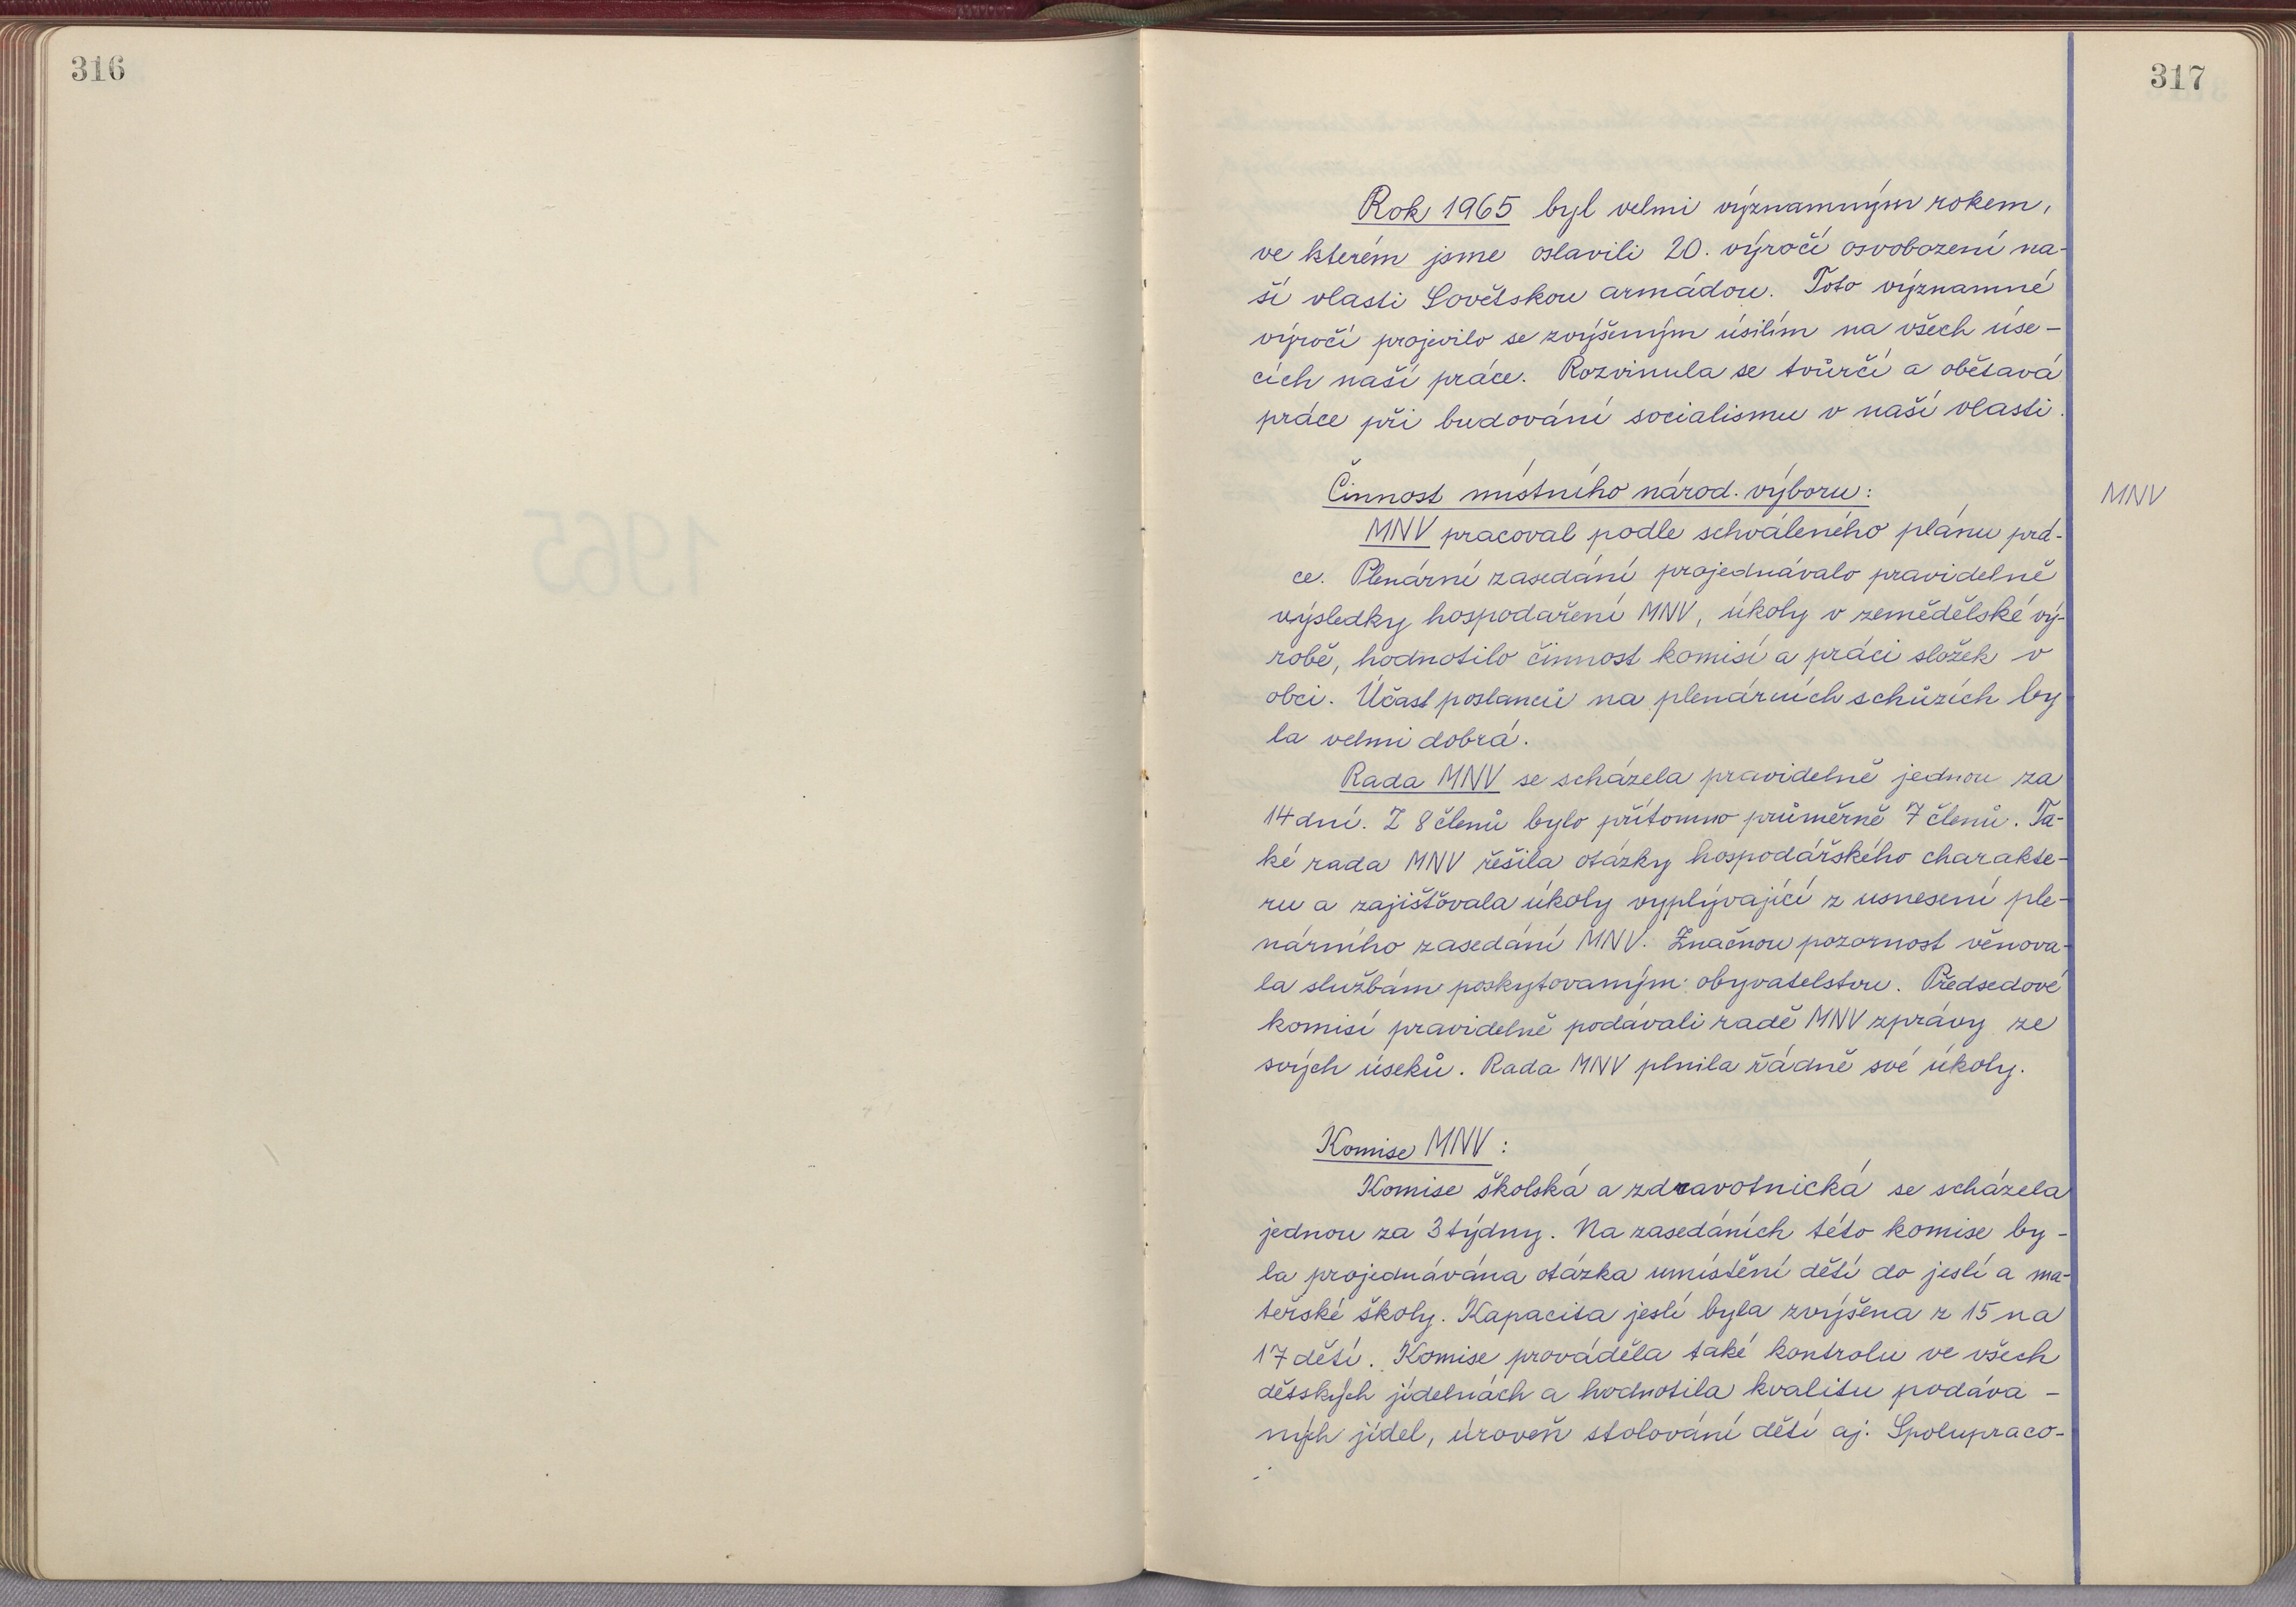 316
317
Rok 1965 byl velmi významným rokem,
ve kterém jsme oslavili 20. výročí osvobození na-
ší vlasti Sovětskou armádou. Toto významné
výročí projevilo se zvýšeným úsilím na všech úse-
cích naší práce. Rozvinula se tvůrčí a obětavá
práce při budování socialismu v naší vlasti.
Činnost místního národ. výboru:
MNV
MNV pracoval podle schváleného plánu prá-
ce. Plenární zasedání projednávalo pravidelně
výsledky hospodaření MNV, úkoly v zemědělské vý-
robě, hodnotilo činnost komisí a práci složek v
obci. Účast poslanců na plenárních schůzích by
la velmi dobrá.
Rada MNV se scházela pravidelně jednou za
14 dní. Z 8 členů bylo přítomno průměrně 7 členů. Ta-
ké rada MNV řešila otázky hospodářského charakte-
ru a zajišťovala úkoly vyplývající z usnesení ple-
nárního zasedání MNV. Značnou pozornost věnova-
la službám poskytovaným obyvatelstvu. Předsedové
komisí pravidelně podávali radě MNV zprávy ze
svých úseků. Rada MNV plnila řádně své úkoly.
Komise MNV:
Komise školská a zdravotnická se scházela
jednou za 3 týdny. Na zasedáních této komise by-
la projednávána otázka umístění dětí do jeslí a ma-
teřské školy. Kapacita jeslí byla zvýšena z 15 na
17 dětí. Komise prováděla také kontrolu ve všech
dětských jídelnách a hodnotila kvalitu podáva-
ných jídel, úroveň stolování dětí aj. Spolupraco-